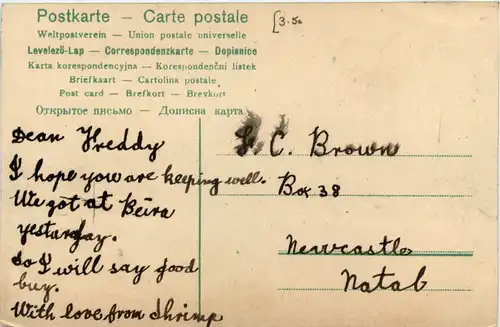 Postkarte — Carte postale
Weltpostverein — Union postale universelle
Levelező-Lap — Correspondenzkarte — Dopisnice
Karta korespondencyjna — Korespondenční listek
Briefkaart — Cartolina postale
Post card — Brefkort — Brevkort
Открытое письмо — Дописна карта
[3.50
Dear Freddy
I hope you are keeping well.
We got at Beira
yestarday.
So I will say good
buy.
With love from Shrimp
F. C. Brown
Box 38
Newcastle
Natal